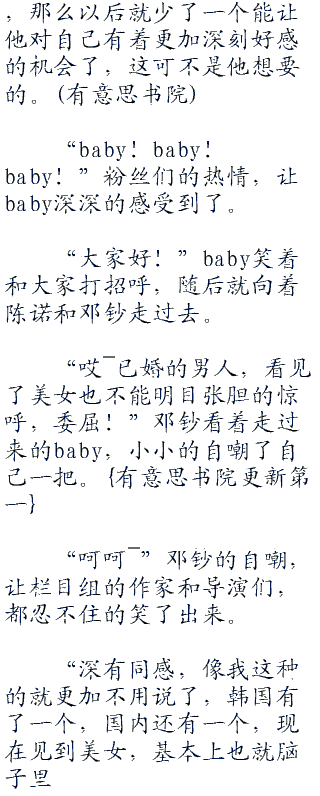 ，那么以后就少了一个能让
他对自己有着更加深刻好感
的机会了，这可不是他想要
的。(有意思书院)
“baby！baby！
baby！”粉丝们的热情，让
baby深深的感受到了。
“大家好！”baby笑着
和大家打招呼，随后就向着
陈诺和邓钞走过去。
“哎¯已婚的男人，看见
了美女也不能明目张胆的惊
呼，委屈！”邓钞看着走过
来的baby，小小的自嘲了自
己一把。{有意思书院更新第
一}
“呵呵¯”邓钞的自嘲，
让栏目组的作家和导演们，
都忍不住的笑了出来。
“深有同感，像我这种
的就更加不用说了，韩国有
了一个，国内还有一个，现
在见到美女，基本上也就脑
子里